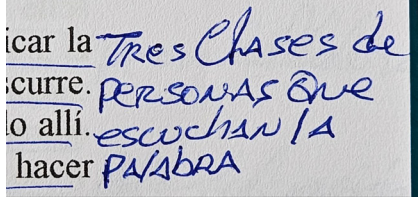 icar la Tres Clases de
scurre. PERSONAS QUE
o allí. escuchan la
hacer PAlAbRA